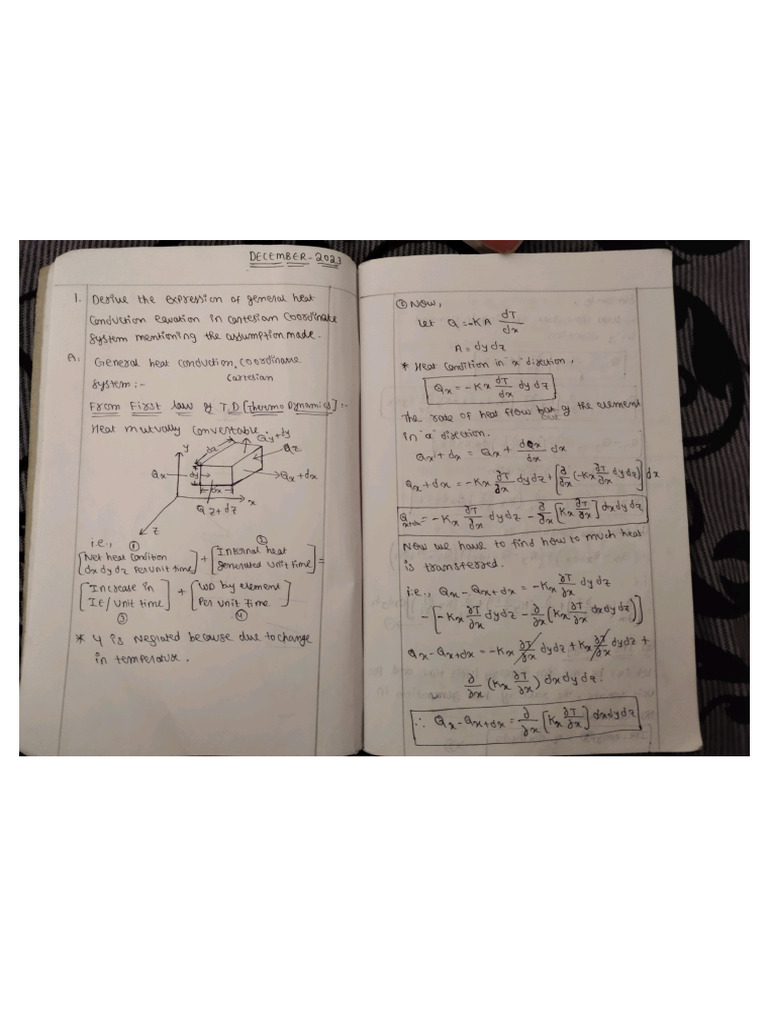 DECEMBER - 2023
1. Derive the expression of general heat
conduction equation in cartesian coordinate
system mentioning the assumption made.
A: General heat conduction, coordinate
cartesian
system :-
From First law of T.D [Thermo Dynamics] :-
Heat mutually convertable.
y
dz
Qy+dy
Qz
Qx
dy
Qx+dx
dx
x
Qz+dz
z
i.e., ① ②
[Net heat condition dx dy dz per unit time] + [Internal heat generated unit time] =
[Increase in IE/unit time] + [WD by element per unit time]
③ ④
* 4 is neglated because due to change
in temperature.
② Now,
let Q = -KA dT/dx
A = dy dz
* Heat condition in "x" direction,
Qx = -Kx dT/dx dy dz
The rate of heat flow out of the element
in "x" direction.
Qx+dx = Qx + dQx/dx dx
Qx+dx = -Kx ∂T/∂x dy dz + [∂/∂x (-Kx ∂T/∂x dy dz)] dx
Qx+dx = -Kx ∂T/∂x dy dz - ∂/∂x [Kx ∂T/∂x] dx dy dz
Now we have to find how to much heat
is transferred.
i.e., Qx - Qx+dx = -Kx ∂T/∂x dy dz
-[-Kx ∂T/∂x dy dz - ∂/∂x (Kx ∂T/∂x dx dy dz)]
Qx - Qx+dx = -Kx ∂T/∂x dy dz + Kx ∂T/∂x dy dz +
∂/∂x (Kx ∂T/∂x) dx dy dz.
∴ Qx - Qx+dx = ∂/∂x [Kx ∂T/∂x] dx dy dz